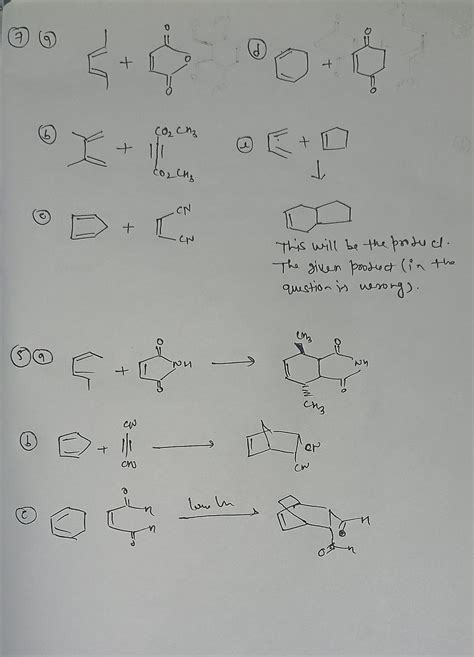 7 a + O O O d + O O
b + CO2CH3 CO2CH3 e +
c + CN CN
This will be the product.
The given product (in the
question is wrong).
5 a + O NH O CH3 O NH O CH3
b + CN CN CN CN
c O H H O O H O H